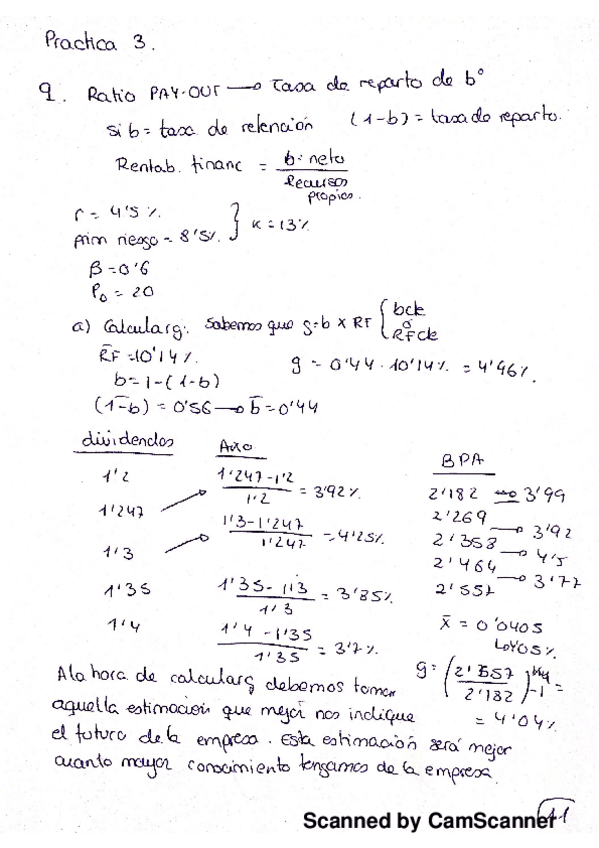 Practica 3.
1. Ratio PAY-OUT → Tasa de reparto de bº
si b = tasa de retención (1-b) = tasa de reparto.
Rentab. financ = b: neto / Recursos propios.
r = 4'5 %.
prim riesgo = 8'5%. } K = 13%
β = 0'6
P₀ = 20
a) Calcular g: Sabemos que g = b x RF { bck o RFck
RF = 10'14 %.
b = 1 - (1-b)
g = 0'44 · 10'14 % = 4'46 %.
(1-b) = 0'56 → b = 0'44
dividendos
1'2
1'247
1'3
1'35
1'4
Año
1'247-1'2 / 1'2 = 3'92 %.
1'3-1'247 / 1'247 = 4'25%.
1'35-1'3 / 1'3 = 3'85%.
1'4-1'35 / 1'35 = 3'7 %.
BPA
2'182 → 3'99
2'269 → 3'92
2'358 → 4'5
2'464 → 3'77
2'557
x̄ = 0'0405
4'05%
g = (2'557 / 2'182)^1/4 - 1 =
= 4'04%.
A la hora de calcular g debemos tomar
aquella estimación que mejor nos indique
el futuro de la empresa. Esta estimación será mejor
cuanto mayor conocimiento tengamos de la empresa.
Scanned by CamScanner